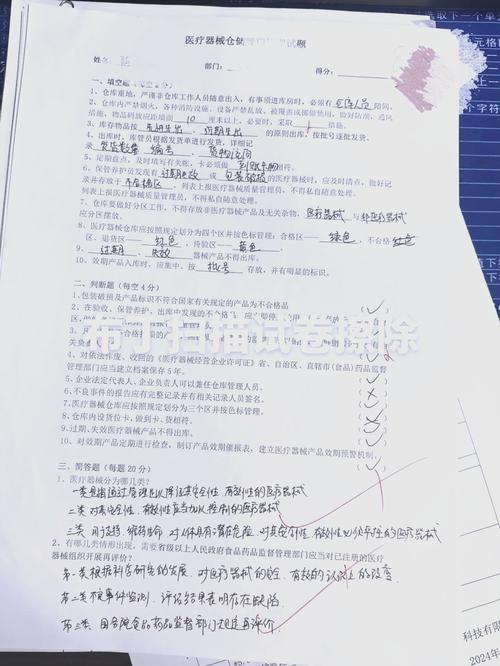 医疗器械仓储管理考试题
姓名: 部门: 得分:
一、填空题(每空4分)
1、仓库重地,严谨非仓库工作人员随意出入,有事须进库房时,必须有仓库人员陪同。
2、仓库内严禁烟火,各种消防设施、设备严禁乱放、被覆盖或挪做他用,做好防潮、通风
措施,物品码放应距墙面 10 厘米以上,必要时,采取 措施。
3、库存物品按 先进先出、近期先出 的原则出库,按批号逐批发货。
4、出库时,库管员根据发货单进行发货,并详细记
录 发货数量 编号、货物流向
5、定期盘点,及时填写有关帐、卡必须做 到账卡相符
6、保管养护员发现有过期失效 或 包装破损的医疗器械时,应及时清点,做好记
录并存放于 不合格区,列表上报医疗器械质量管理员,不得私自随意处理。
列表上报医疗器械质量管理员,不得私自随意处理。
7、仓库要做好分区工作,不得存放非医疗器械产品及无关杂物,医疗器械 与非医疗器械
应分区摆放。
8、医疗器械仓库应按照规定划分为四个区并按色标管理:合格区—— 绿色,不合格 红色
区、退货区—— 红色,待验区—— 黄色。
9、过期、失效 器械产品不得出库。
10、效期产品入库时,应集中、按 批号 存放,并有明显的标识。
二、判断题(每空4分)
1、包装破损及产品标识不符合国家有关规定的产品为不合格品 (√)
2、在验收、保管养护、出库中发现的不合格品,应
负关
4、对依法作废、收回的《医疗器械经营企业许可证》省、自治区、直辖市(食品)药品监督
管理部门应当建立档案保存5年。
5、企业法定代表人、企业负责人可以兼任仓库管理人员。
6、不良事件的报告应有完整记录并有相关记录人员签名。
7、医疗器械仓库应按照规定划分为三个区并按色标管理。
8、仓库内设货位卡,做到卡、货相符。
9、过期、失效医疗器械产品不得出库。
10、对效期产品定期进行检查,制订产品效期催报表,建立医疗器械产品效期预警机制。
布丁扫描试卷擦除
三、简答题(每题20分)
1、医疗器械分为哪几类?
一类是指通过常规管理足以保证其安全性、有效性的医疗器械
二类 对其安全性、有效性应当加以控制的医疗器械
三类 用于支持、维持生命 对人体具有潜在危险,对其安全性、有效性必须严控的医疗器械
2、有哪几类情形出现,需要省级以上人民政府食品药品监督管理部门应当对已注册的医疗
器械组织开展再评价?
第一类 根据科学研究的发展,对医疗器械的安全、有效的认识上的改变
第二类 不良事件监测、评估结果表明存在缺陷
第三类 国务院食品药品监督部门规定再评价
科技有限
2024年